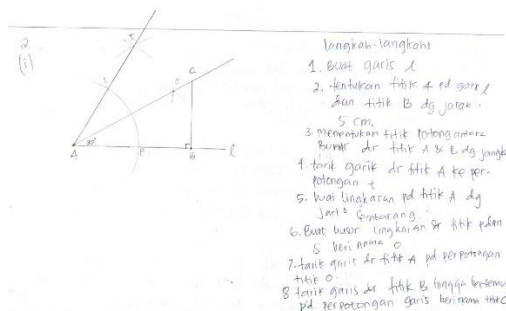 2.
(i)
C
A
30°
P
B
l
langkah-langkahs
1. Buat garis l
2. tentukan titik A pd garis l
dan titik B dg jarak
5 cm.
3. menentukan titik potong antara
Busur dr titik A & B dg jangka
4. tarik garik dr titik A ke per-
potongan t
5. lingkaran pd titik A dg
jari² sembarang.
6. Buat busur lingkaran dr titik p dan
S beri nama O
7. tarik garis dr titik A pd perpotongan
titik O.
8 tarik garis dr titik B hingga bertemu
pd perpotongan garis beri nama titik C